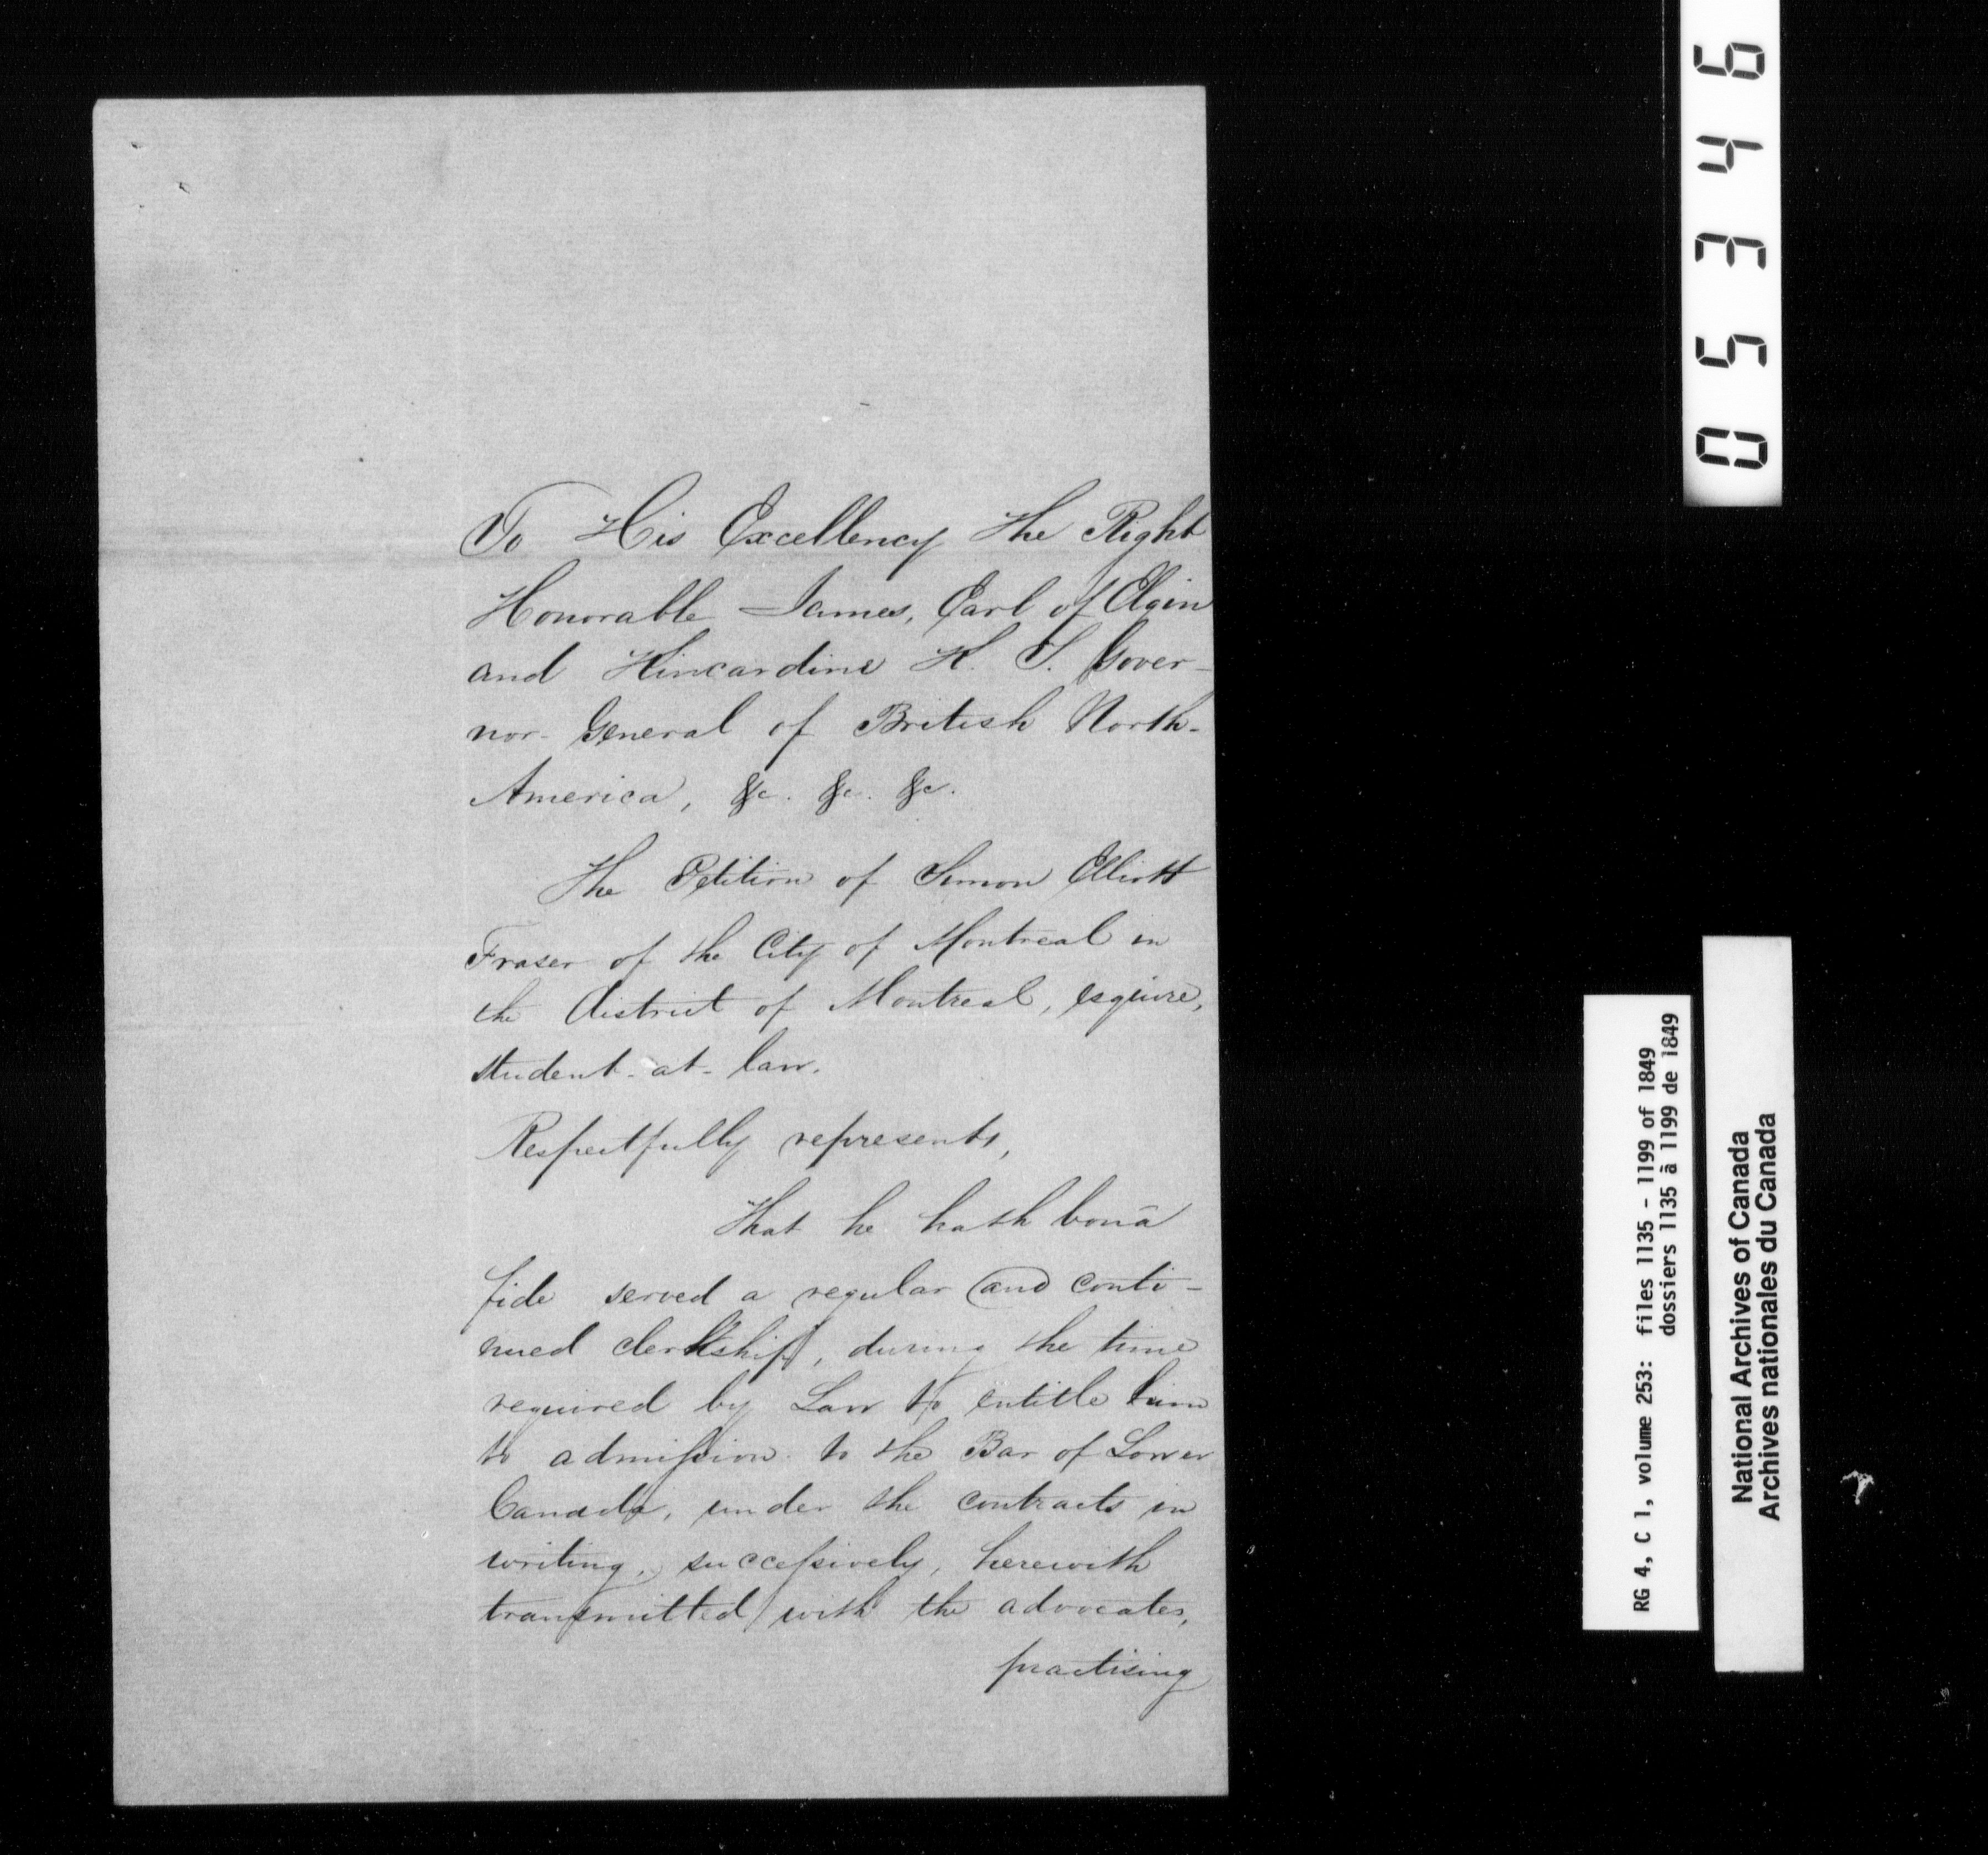 To His Excellency the Right
Honorable James, Earl of Elgin
and Kincardine K. T. Gover-
nor- General of British North-
America, &c. &c. &c.
The Petition of Simon Elliott
Fraser of the City of Montreal in
the district of Montreal, esquire,
student-at-law.
Respectfully represents,
That he hath bonâ
fide served a regular and conti-
nued clerkship, during the time
required by Law to entitle him
to admission to the Bar of Lower
Canada, under the contracts in
writing, successively, herewith
transmitted with the advocates,
practising
05346
RG 4, C 1, volume 253: files 1135 - 1199 of 1849
dossiers 1135 à 1199 de 1849
National Archives of Canada
Archives nationales du Canada